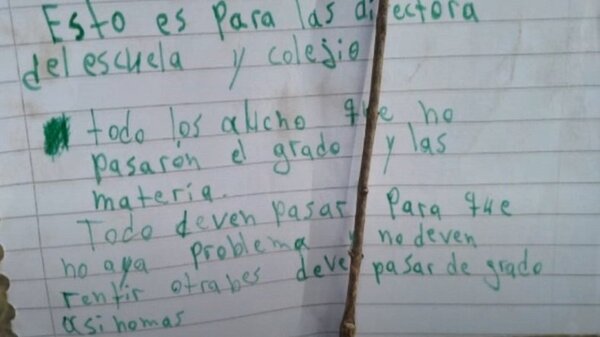 Esto es para las directora
del escuela y colegio
todo los alucho que no
pasaron el grado y las
materia.
Todo deven pasar Para que
no aya problema y no deven
rentir otrabes deven pasar de grado
asi nomas